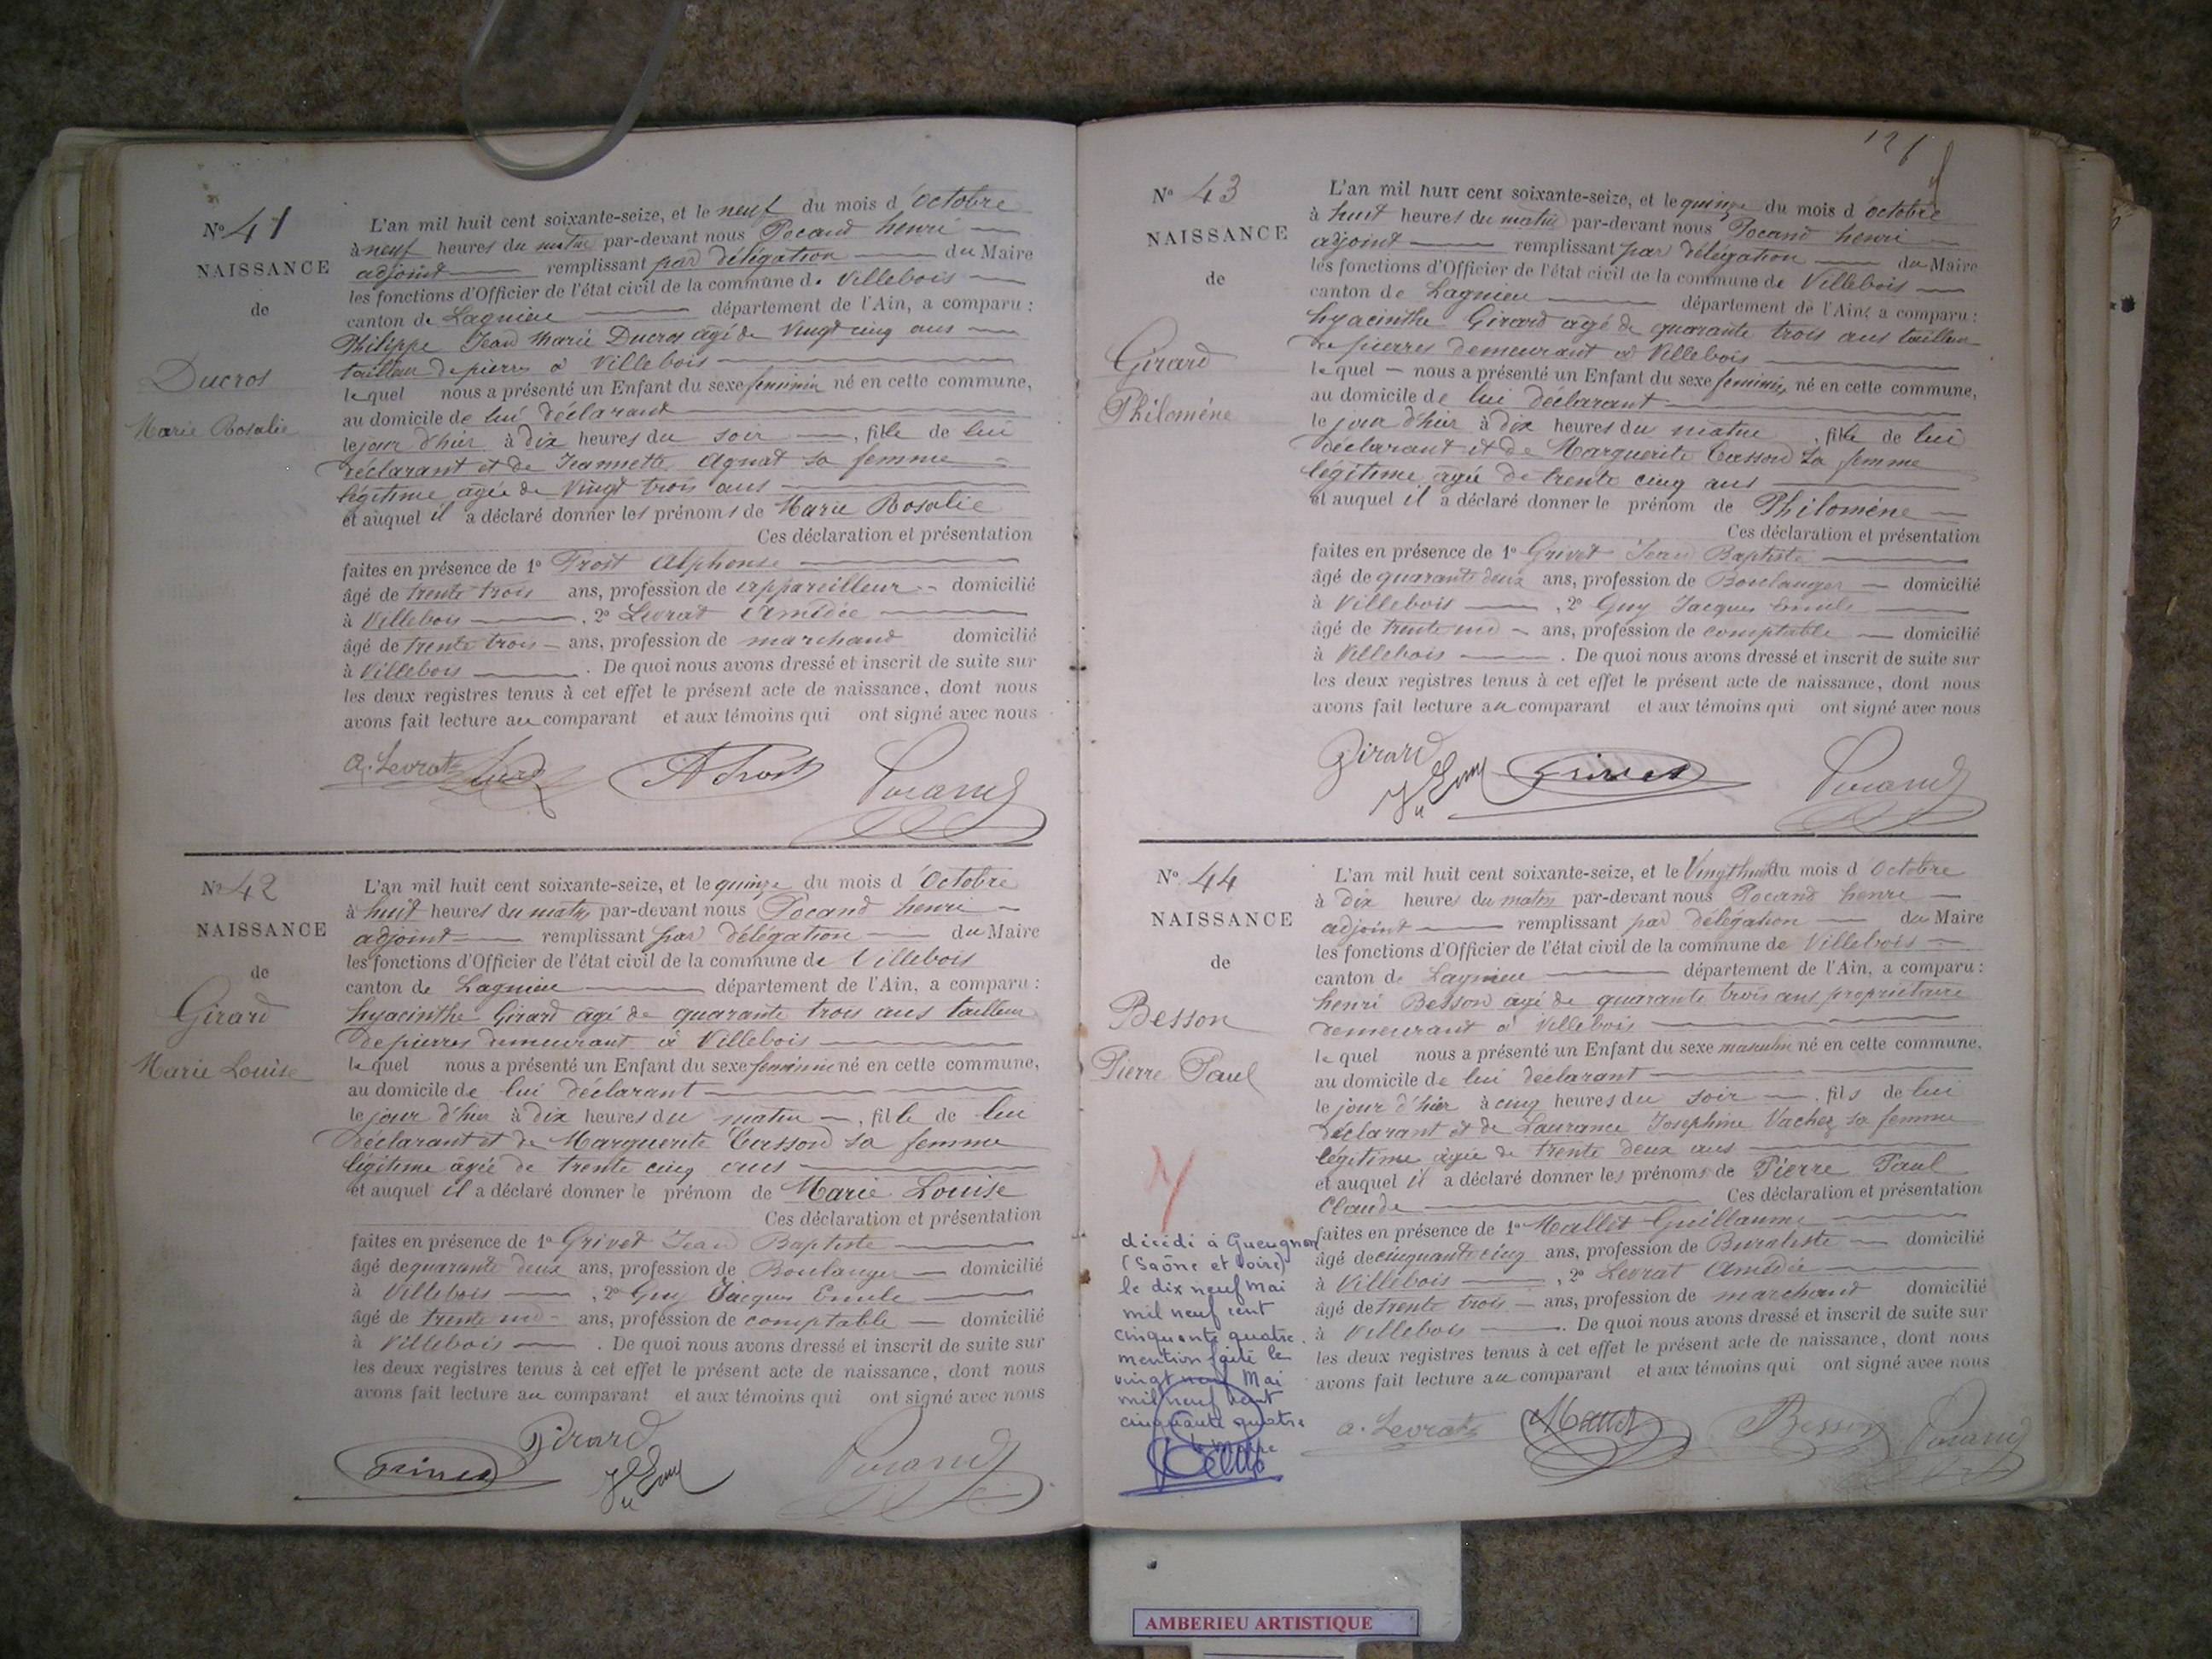 No 41
NAISSANCE
de
Ducros
Marie Rosalie
L'an mil huit cent soixante-seize, et le neuf du mois d'Octobre
à neuf heures du matin par-devant nous Pocand henri
adjoint remplissant par délégation du Maire
les fonctions d'Officier de l'état civil de la commune de Villebois
canton de Lagnieu département de l'Ain, a comparu :
Philippe Jean Marie Ducros âgé de Vingt cinq ans
tailleur de pierres à Villebois
lequel nous a présenté un Enfant du sexe féminin né en cette commune,
au domicile de lui déclarant
le jour d'hier à dix heures du soir , fille de lui
déclarant et de Jeannette Agnat sa femme
légitime âgée de Vingt trois ans
et auquel il a déclaré donner les prénoms de Marie Rosalie
Ces déclaration et présentation
faites en présence de 1o Trost Alphonse
âgé de trente trois ans, profession de appareilleur domicilié
à Villebois , 2o Levrat Amédée
âgé de trente trois ans, profession de marchand domicilié
à Villebois . De quoi nous avons dressé et inscrit de suite sur
les deux registres tenus à cet effet le présent acte de naissance, dont nous
avons fait lecture au comparant et aux témoins qui ont signé avec nous
A. Levrat A Trost Pocand
No 42
NAISSANCE
de
Girard
Marie Louise
L'an mil huit cent soixante-seize, et le quinze du mois d'Octobre
à huit heures du matin par-devant nous Pocand henri
adjoint remplissant par délégation du Maire
les fonctions d'Officier de l'état civil de la commune de Villebois
canton de Lagnieu département de l'Ain, a comparu :
hyacinthe Girard âgé de quarante trois ans tailleur
de pierres demeurant à Villebois
lequel nous a présenté un Enfant du sexe féminin né en cette commune,
au domicile de lui déclarant
le jour d'hier à dix heures du matin , fille de lui
déclarant et de Marguerite Casson sa femme
légitime âgée de trente cinq ans
et auquel il a déclaré donner le prénom de Marie Louise
Ces déclaration et présentation
faites en présence de 1o Grivet Jean Baptiste
âgé de quarante deux ans, profession de Boulanger domicilié
à Villebois , 2o Guy Jacques Emile
âgé de trente un ans, profession de comptable domicilié
à Villebois . De quoi nous avons dressé et inscrit de suite sur
les deux registres tenus à cet effet le présent acte de naissance, dont nous
avons fait lecture au comparant et aux témoins qui ont signé avec nous
Girard
Grivet Guy Pocand
No 43
NAISSANCE
de
Girard
Philoméne
L'an mil huit cent soixante-seize, et le quinze du mois d'octobre
à huit heures du matin par-devant nous Pocand henri
adjoint remplissant par délégation du Maire
les fonctions d'Officier de l'état civil de la commune de Villebois
canton de Lagnieu département de l'Ain, a comparu :
hyacinthe Girard âgé de quarante trois ans tailleur
de pierres demeurant à Villebois
lequel nous a présenté un Enfant du sexe féminin né en cette commune,
au domicile de lui déclarant
le jour d'hier à dix heures du matin , fille de lui
déclarant et de Marguerite Casson sa femme
légitime âgée de trente cinq ans
et auquel il a déclaré donner le prénom de Philoméne
Ces déclaration et présentation
faites en présence de 1o Grivet Jean Baptiste
âgé de quarante deux ans, profession de Boulanger domicilié
à Villebois , 2o Guy Jacques Emile
âgé de trente un ans, profession de comptable domicilié
à Villebois . De quoi nous avons dressé et inscrit de suite sur
les deux registres tenus à cet effet le présent acte de naissance, dont nous
avons fait lecture au comparant et aux témoins qui ont signé avec nous
Girard
Guy Grivet Pocand
No 44
NAISSANCE
de
Besson
Pierre Paul
décédé à Gueugnon
(Saône et Loire)
le dix neuf Mai
mil neuf cent
cinquante quatre.
mention faite le
vingt neuf Mai
mil neuf cent
cinquante quatre
le Maire
L'an mil huit cent soixante-seize, et le Vingt huit du mois d'Octobre
à dix heures du matin par-devant nous Pocand henri
adjoint remplissant par délégation du Maire
les fonctions d'Officier de l'état civil de la commune de Villebois
canton de Lagnieu département de l'Ain, a comparu :
henri Besson âgé de quarante trois ans propriétaire
demeurant à Villebois
lequel nous a présenté un Enfant du sexe masculin né en cette commune,
au domicile de lui déclarant
le jour d'hier à cinq heures du soir , fils de lui
déclarant et de Laurance Joséphine Vachez sa femme
légitime âgée de trente deux ans
et auquel il a déclaré donner les prénoms de Pierre Paul
Claude Ces déclaration et présentation
faites en présence de 1o Mallet Guillaume
âgé de cinquante cinq ans, profession de Buraliste domicilié
à Villebois , 2o Levrat Amédée
âgé de trente trois ans, profession de marchand domicilié
à Villebois . De quoi nous avons dressé et inscrit de suite sur
les deux registres tenus à cet effet le présent acte de naissance, dont nous
avons fait lecture au comparant et aux témoins qui ont signé avec nous
a. Levrat Mallet Besson Pocand
AMBERIEU ARTISTIQUE